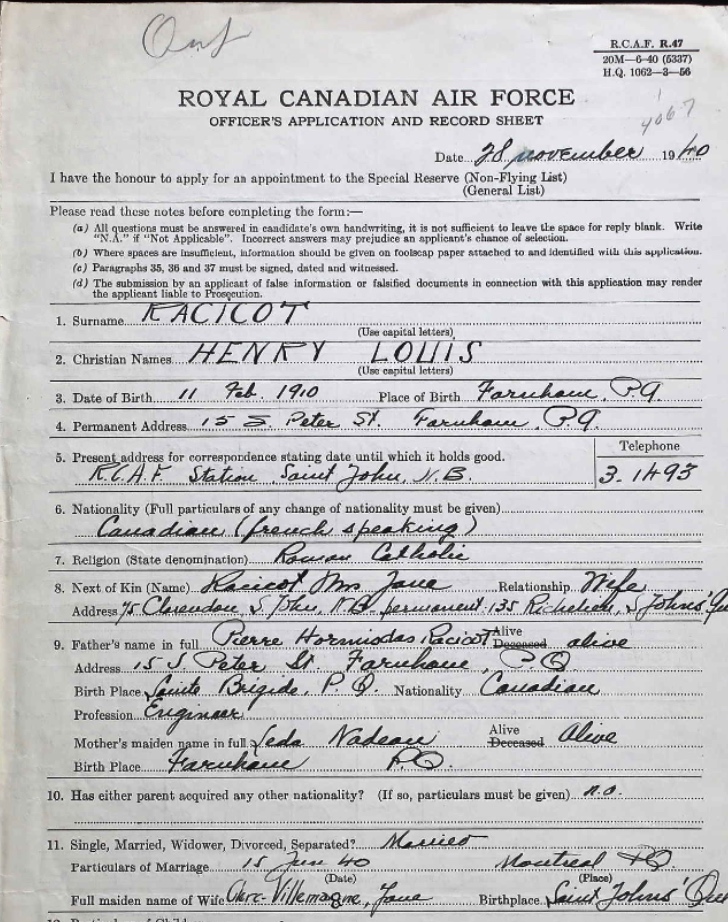 Out
R.C.A.F. R.47
20M—6-40 (5337)
H.Q. 1062—3—56
4067
ROYAL CANADIAN AIR FORCE
OFFICER'S APPLICATION AND RECORD SHEET
Date 28 november 1940
I have the honour to apply for an appointment to the Special Reserve (Non-Flying List)
(General List)
Please read these notes before completing the form:—
(a) All questions must be answered in candidate's own handwriting, it is not sufficient to leave the space for reply blank. Write
"N.A." if "Not Applicable". Incorrect answers may prejudice an applicant's chance of selection.
(b) Where spaces are insufficient, information should be given on foolscap paper attached to and identified with this application.
(c) Paragraphs 35, 36 and 37 must be signed, dated and witnessed.
(d) The submission by an applicant of false information or falsified documents in connection with this application may render
the applicant liable to Prosecution.
1. Surname RACICOT
(Use capital letters)
2. Christian Names HENRY LOUIS
(Use capital letters)
3. Date of Birth 11 Feb. 1910 Place of Birth Farnham, P.Q.
4. Permanent Address 15 S. Peter St. Farnham, P.Q.
5. Present address for correspondence stating date until which it holds good. Telephone
R.C.A.F. Station, Saint John, N.B. 3-1493
6. Nationality (Full particulars of any change of nationality must be given)
Canadian (french speaking)
7. Religion (State denomination) Roman Catholic
8. Next of Kin (Name) Racicot Mrs Jane Relationship Wife
Address 75 Clarendon, S John, N.B. permanent: 135 Richelieu, S Johns' Qu
9. Father's name in full Pierre Hormisdas Racicot Alive Deceased alive
Address 15 S Peter St. Farnham, P.Q
Birth Place Sainte Brigide, P.Q. Nationality Canadian
Profession Engineer
Mother's maiden name in full Leda Nadeau Alive Deceased Alive
Birth Place Farnham P.Q.
10. Has either parent acquired any other nationality? (If so, particulars must be given) n.o.
11. Single, Married, Widower, Divorced, Separated? Married
Particulars of Marriage 15 June 40 Montreal P.Q.
(Date) (Place)
Full maiden name of Wife Jane Birthplace Saint Johns' Que